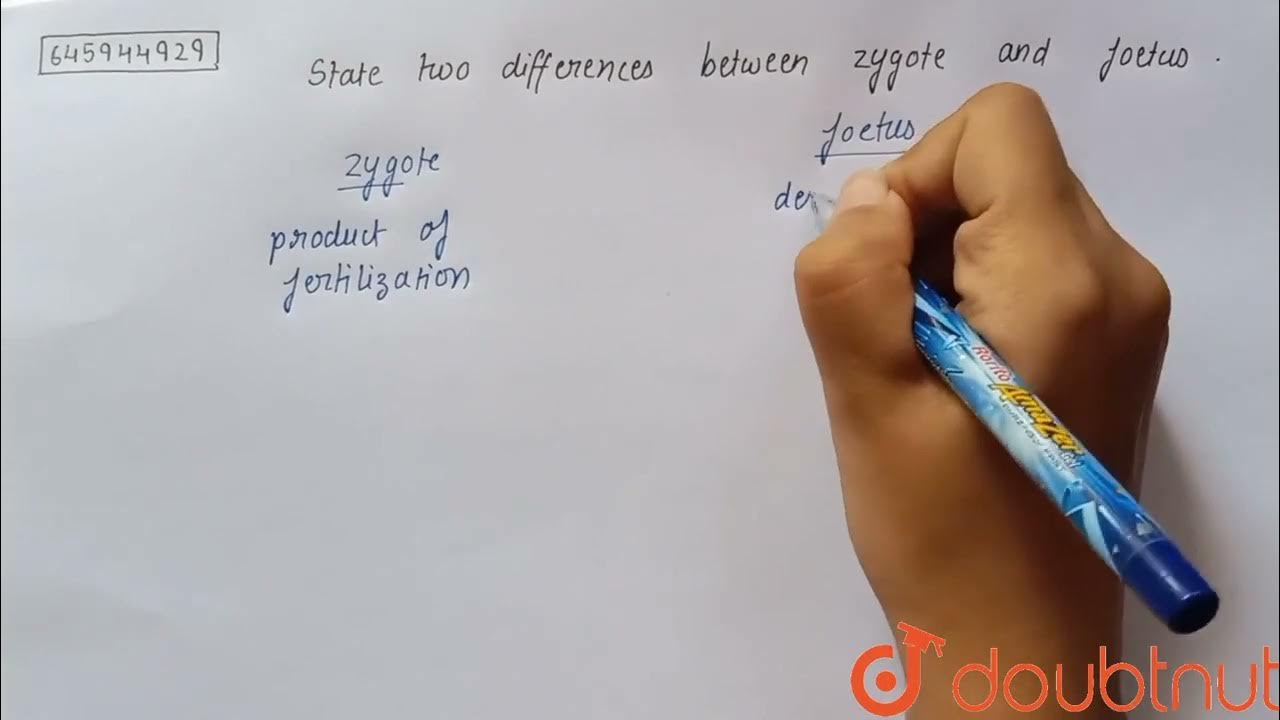 645944929
State two differences between zygote and foetus.
foetus
zygote
product of
fertilization
Rorito
AmaZer
doubtnut